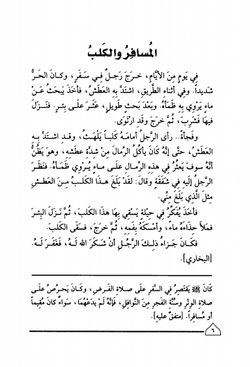 المُسافِرُ والكَلبُ
فِي يَومٍ مِنَ الأيَّامِ، خَرَجَ رَجُلٌ فِي سَفَرٍ، وكَانَ الحَرُّ
شَدِيدًا. وفِي أثنَاءِ الطَّرِيقِ، اشتَدَّ بِهِ العَطَشُ، فَأخَذَ يَبحَثُ عَن
مَاءٍ يَروِي بِهِ ظَمَأَهُ. وبَعدَ بَحثٍ طَوِيلٍ، عَثَرَ عَلَى بِئرٍ. فَنَزَلَ
فِيهَا فَشَرِبَ، ثُمَّ خَرَجَ وقَدِ ارتَوَى.
وفَجأَةً.. رأَى الرَّجُلُ أمَامَهُ كَلبًا يَلهَثُ، وقَدِ اشتَدَّ بِهِ
العَطَشُ، حَتَّى إنَّهُ كَانَ يَأكُلُ الرِّمَالَ مِن شِدَّةِ عَطَشِهِ، وهو يَظُنُّ
أنَّهُ سَوفَ يَعثُرُ فِي هذِهِ الرِّمَالِ عَلَى مَاءٍ يُروِي ظَمَأَهُ. فَنَظَرَ
الرَّجُلُ إلَيهِ فِي شَفَقَةٍ وقَالَ: لَقَد بَلَغَ هذَا الكَلبُ مِنَ العَطَشِ
مِثلَ الَّذِي بَلَغَ مِنِّي.
فأخَذَ يُفَكِّرُ فِي حِيلَةٍ يَسقِي بِهَا هذَا الكَلبَ، ثُمَّ نَزَلَ البِئرَ
فَمَلأ حِذَاءَهُ مَاءً، وأمسَكَهُ بِفَمِهِ، ثُمَّ خَرَجَ، فَسَقَى الكَلبَ.
فَكَانَ جَزَاءُ ذلِكَ الرَّجُلِ أنْ شَكَرَ اللهُ لَهُ، فَغَفَرَ لَهُ.
[البخاري].
كَانَ ﷺ يَقتَصِرُ فِي السَّفَرِ عَلَى صَلاةِ الفَرضِ، وكَانَ يَحرِصُ عَلَى
صَلاةِ الوِترِ وسُنَّةِ الفَجرِ مِنَ النَّوافِلِ، فَإنَّهُ لَم يَدَعْهُمَا، سَواءٌ كَانَ مُقِيمًا
أو مُسَافِرًا. [متفق عليه].
٦